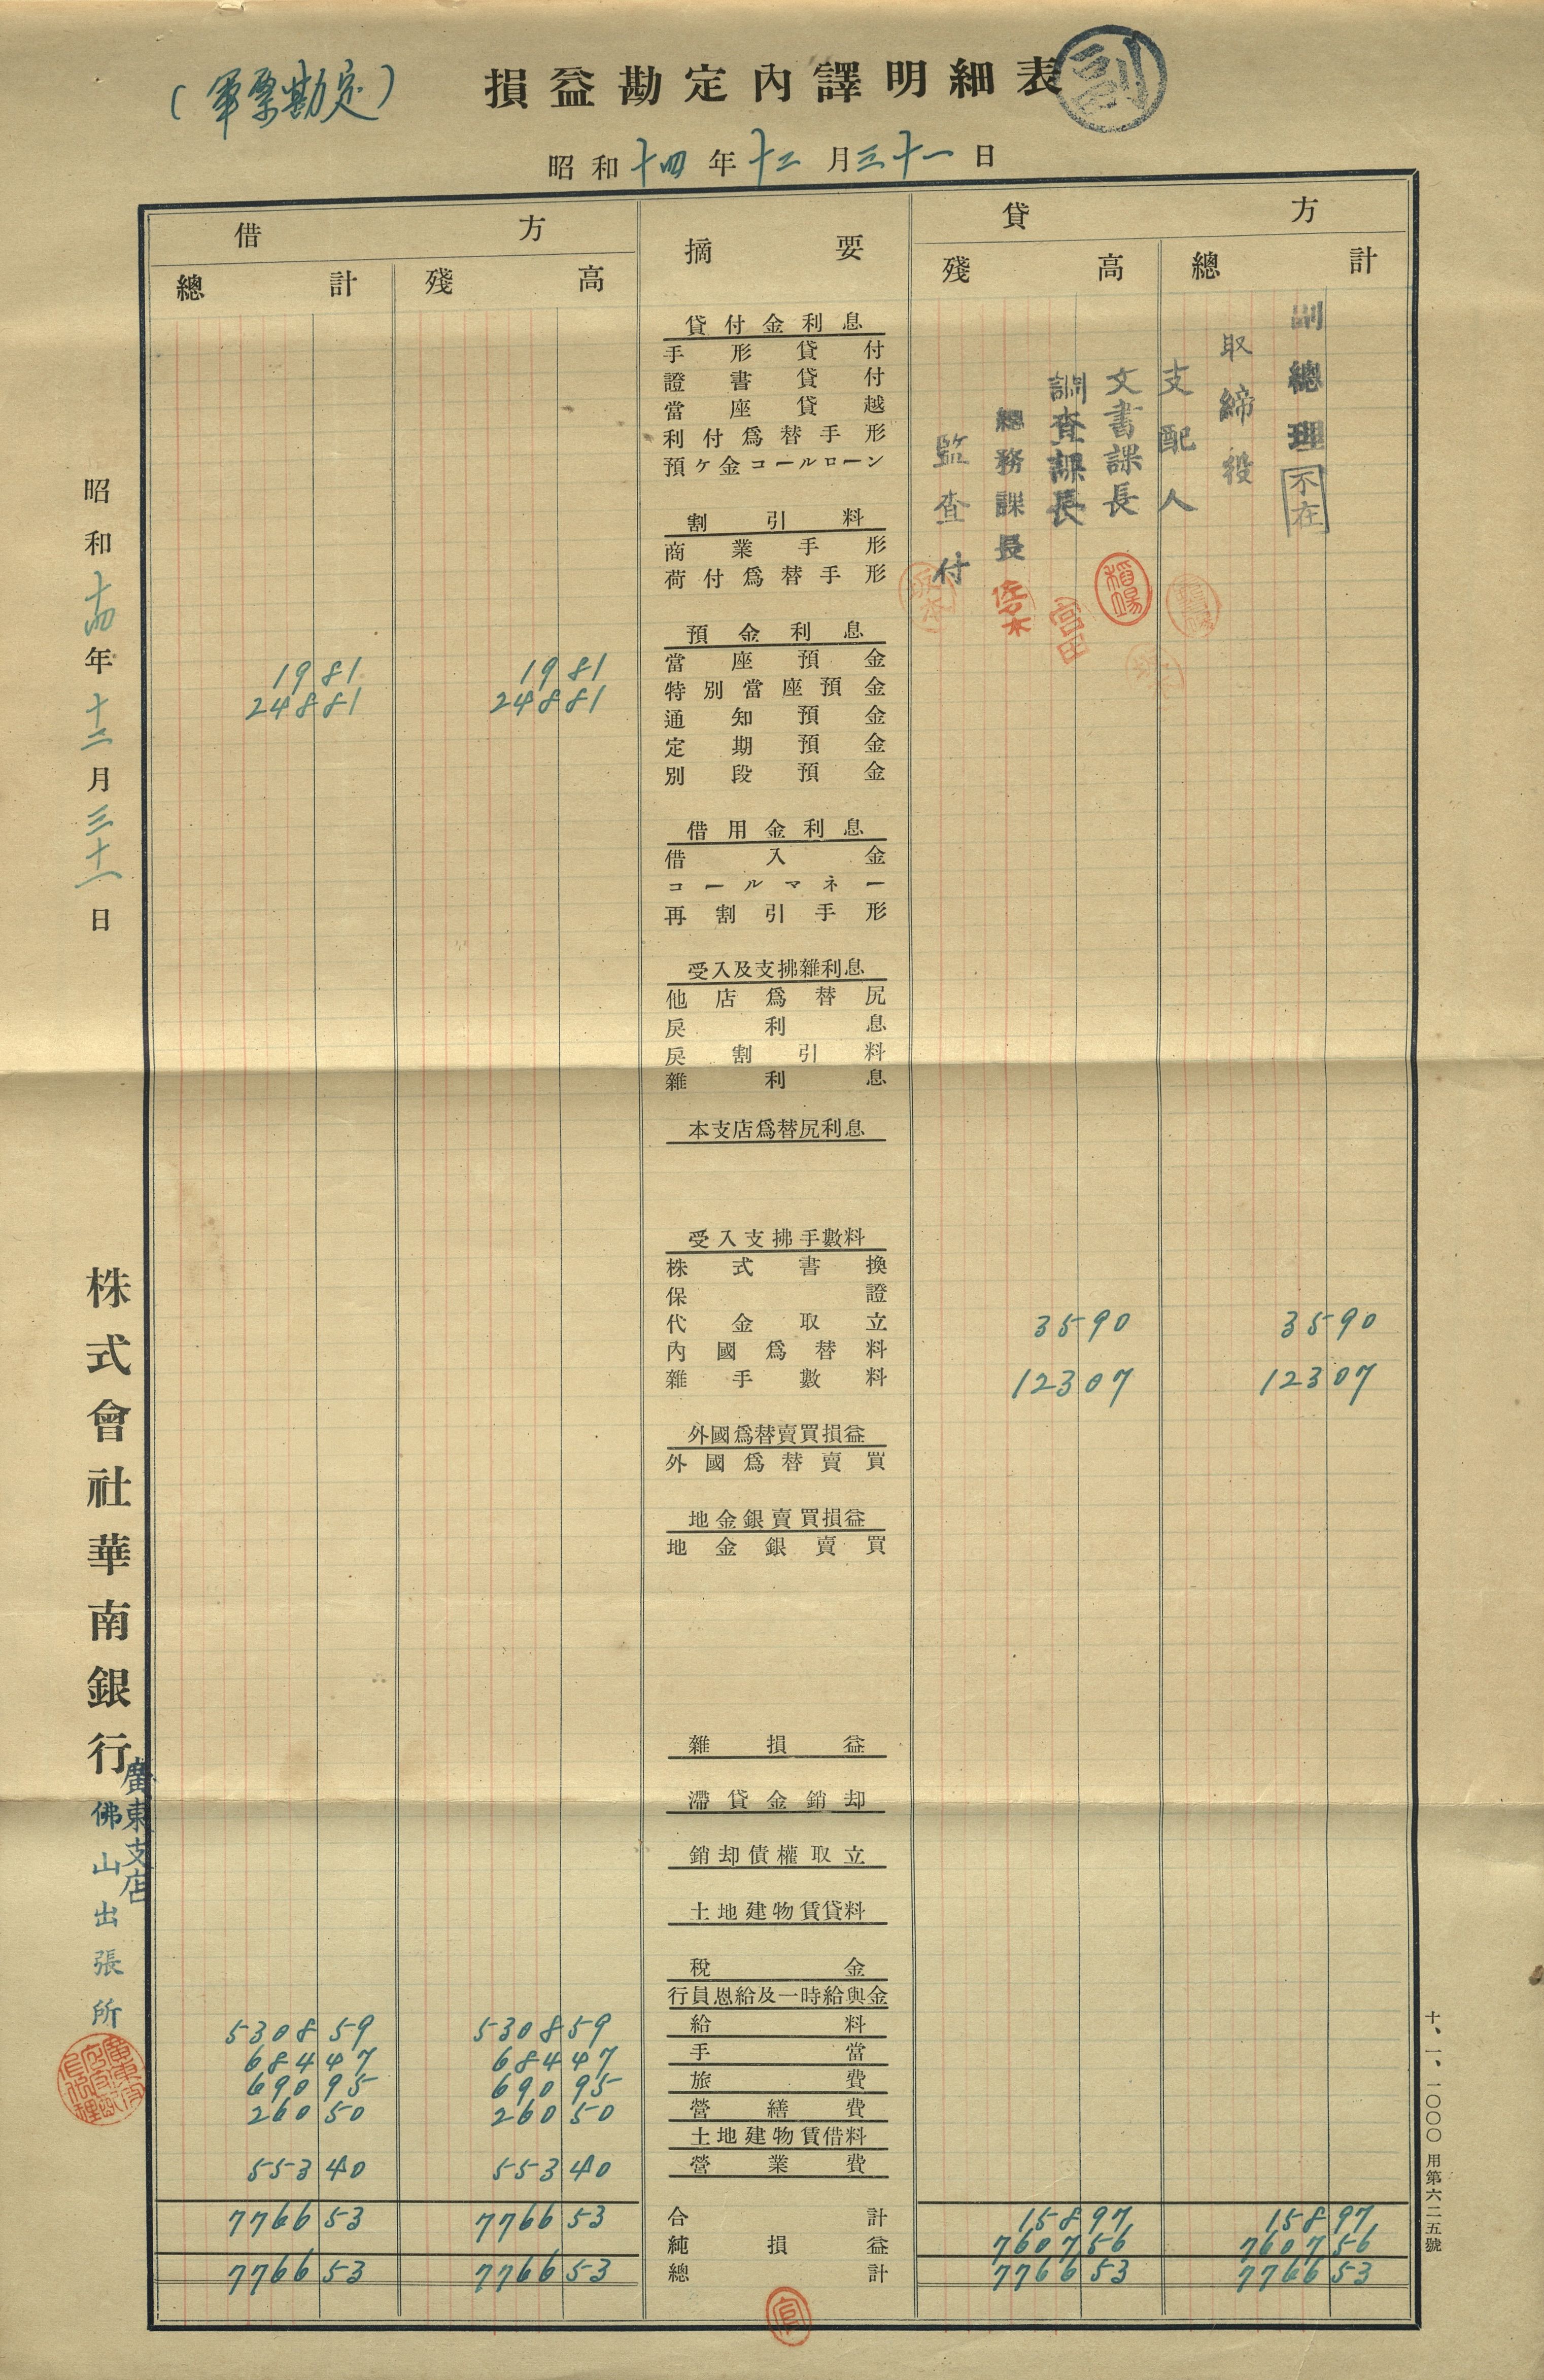 (軍票勘定)
損益勘定內譯明細表
副
昭和十四年十二月三十一日
借方 摘要 貸方
總計 殘高 殘高 總計
副總理 不在
取締役
支配人
文書課長
調査課長
總務課長
監査付
稻場
宮田
佐々木
貸付金利息
手形貸付
證書貸付
當座貸越
利付爲替手形
預ケ金コールローン
割引料
商業手形
荷付爲替手形
預金利息
當座預金
19 81 19 81 特別當座預金
248 81 248 81 通知預金
定期預金
別段預金
借用金利息
借入金
コールマネー
再割引手形
受入及支拂雜利息
他店爲替尻
戾利息
戾割引料
雜利息
本支店爲替尻利息
受入支拂手數料
株式書換
保證
代金取立 35 90 35 90
內國爲替料
雜手數料 123 07 123 07
外國爲替賣買損益
外國爲替賣買
地金銀賣買損益
地金銀賣買
雜損益
滯貸金銷却
銷却債權取立
土地建物賃貸料
稅金
行員恩給及一時給與金
5308 59 5308 59 給料
684 47 684 47 手當
690 95 690 95 旅費
260 50 260 50 營繕費
土地建物賃借料
553 40 553 40 營業費
7766 53 7766 53 合計 158 97 158 97
純損益 7607 56 7607 56
7766 53 7766 53 總計 7766 53 7766 53
昭和十四年十二月三十一日
株式會社華南銀行
廣東支店
佛山出張所
十、一、一〇〇〇 用第六二五號